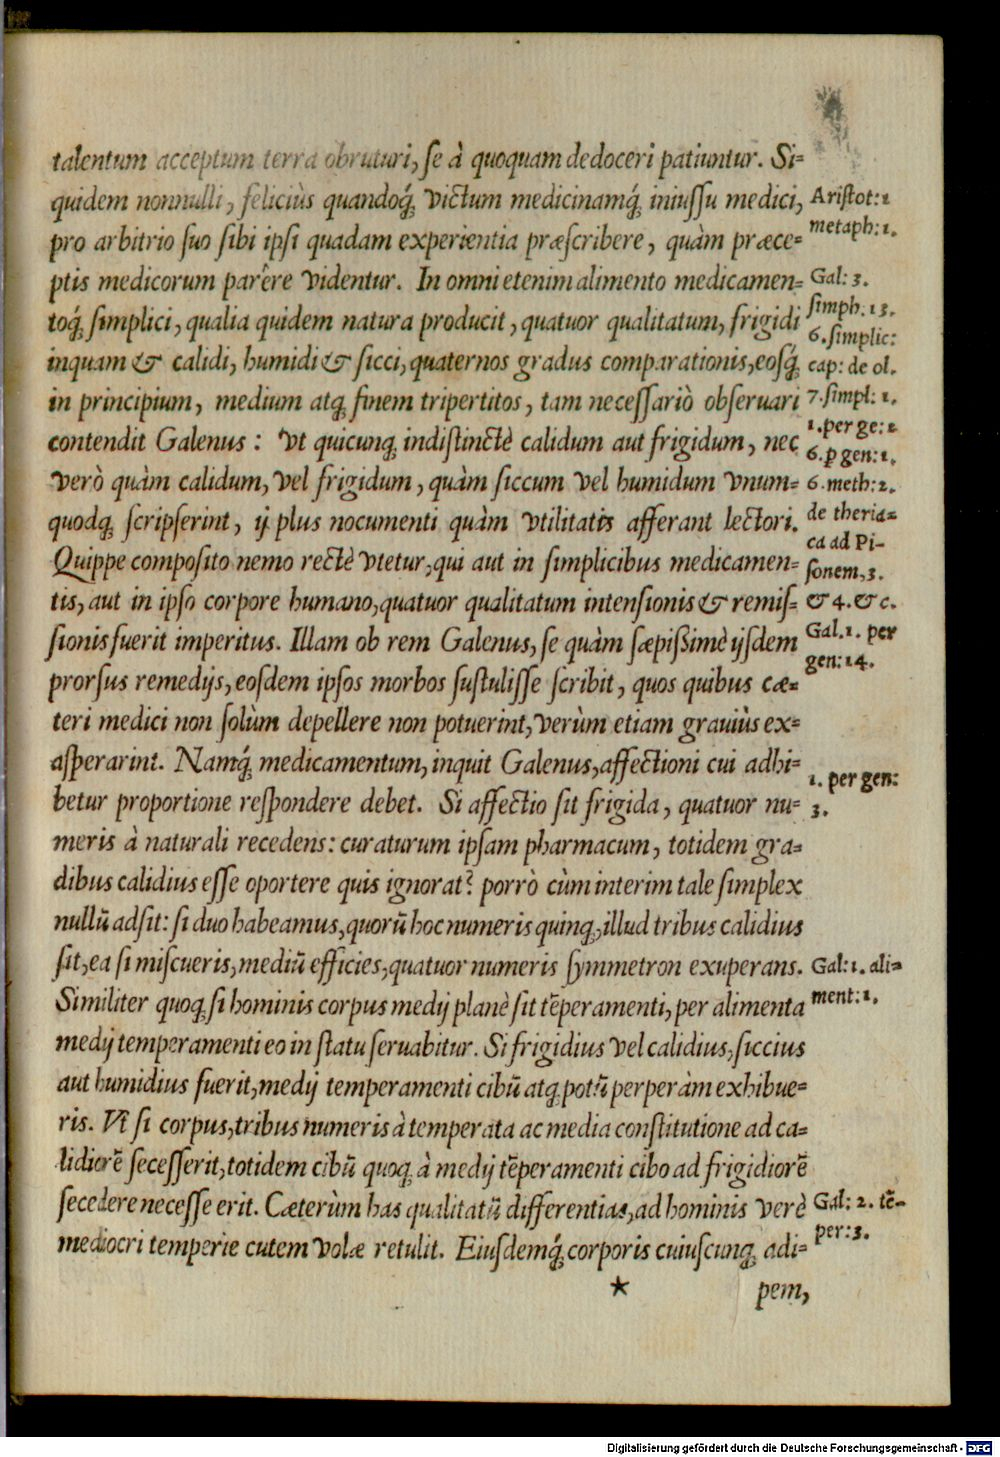 talentum acceptum terra obruturi, ſe à quoquam dedoceri patiuntur. Si=
quidem nonnulli, feliciùs quandoq́; victum medicinamq́; iniuſſu medici,
pro arbitrio ſuo ſibi ipſi quadam experientia præſcribere, quàm præce=
ptis medicorum parêre videntur. In omni etenim alimento medicamen=
toq́; ſimplici, qualia quidem natura producit, quatuor qualitatum, frigidi
inquam & calidi, humidi & ſicci, quaternos gradus comparationis, eoſq́;
in principium, medium atq; finem tripertitos, tam neceſſariò obſeruari
contendit Galenus: vt quicunq; indiſtinctè calidum aut frigidum, nec
verò quàm calidum, vel frigidum, quàm ſiccum vel humidum vnum=
quodq; ſcripſerint, ij plus nocumenti quàm vtilitatis afferant lectori.
Quippe compoſito nemo rectè vtetur, qui aut in ſimplicibus medicamen=
tis, aut in ipſo corpore humano, quatuor qualitatum intenſionis & remiſ=
ſionis fuerit imperitus. Illam ob rem Galenus, ſe quàm ſæpißimè ijſdem
prorſus remedijs, eoſdem ipſos morbos ſuſtuliſſe ſcribit, quos quibus cæ=
teri medici non ſolùm depellere non potuerint, verùm etiam grauiùs ex=
aſperarint. Namq́; medicamentum, inquit Galenus, affectioni cui adhi=
betur proportione reſpondere debet. Si affectio ſit frigida, quatuor nu=
meris à naturali recedens: curaturum ipſam pharmacum, totidem gra=
dibus calidius eſſe oportere quis ignorat? porrò cùm interim tale ſimplex
nullū adſit: ſi duo habeamus, quorū hoc numeris quinq;, illud tribus calidius
ſit, ea ſi miſcueris, mediū efficies, quatuor numeris ſymmetron exuperans.
Similiter quoq; ſi hominis corpus medij planè ſit tēperamenti, per alimenta
medij temperamenti eo in ſtatu ſeruabitur. Si frigidius vel calidius, ſiccius
aut humidius fuerit, medij temperamenti cibū atq; potū perperàm exhibue=
ris. Vt ſi corpus, tribus numeris à temperata ac media conſtitutione ad ca=
lidiorē ſeceſſerit, totidem cibū quoq; à medij tēperamenti cibo ad frigidiorē
ſecedere neceſſe erit. Cæterùm has qualitatū differentias, ad hominis verè
mediocri temperie cutem volæ retulit. Eiuſdemq́; corporis cuiuſcunq; adi=
*
pem,
Ariſtot: 1
metaph: 1.
Gal: 3.
ſimph: 13.
6. ſimplic:
cap: de ol.
7. ſimpl: 1.
1. per ge: 2
6. ꝑ gen: 1.
6. meth: 2.
de theria=
ca ad Pi-
ſonem, 3.
& 4. & c.
Gal. 1. per
gen: 14.
1. per gen:
3.
Gal: 1. ali=
ment: 1.
Gal: 2. tē-
per: 3.
Digitalisierung gefördert durch die Deutsche Forschungsgemeinschaft - DFG